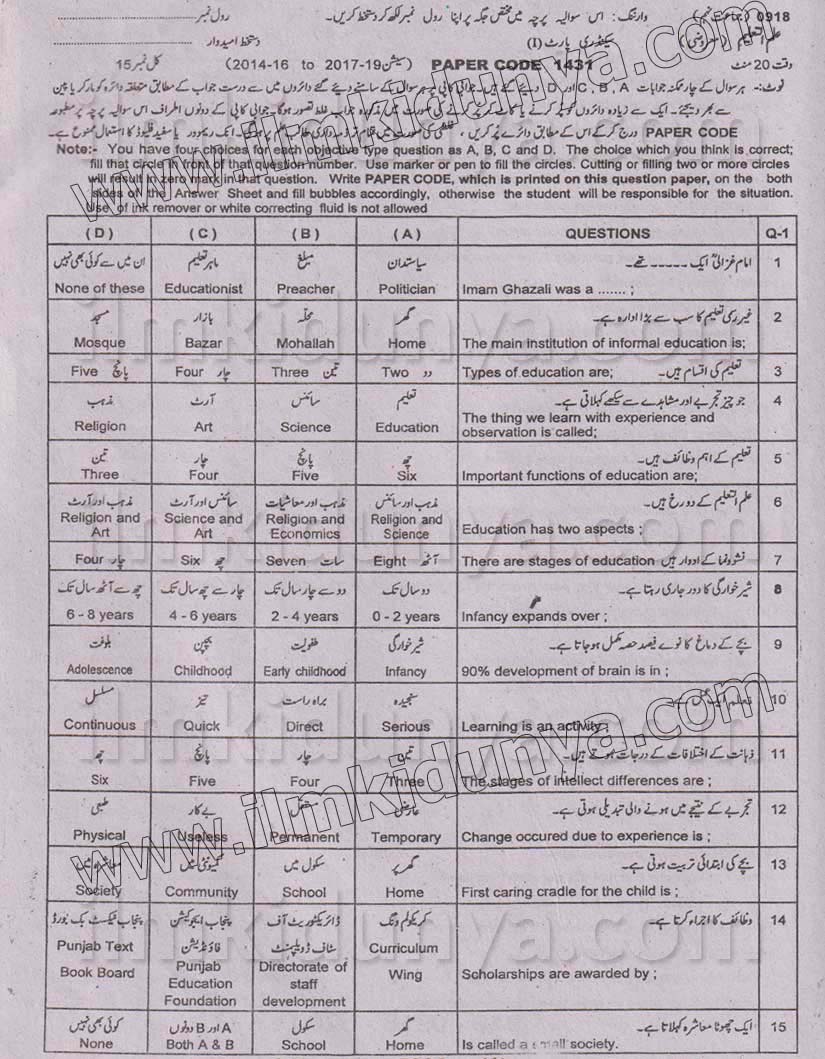 0918 (جماعت نہم) وارننگ: اس سوالیہ پرچہ میں مختص جگہ پر اپنا رول نمبر لکھ کر دستخط کریں۔ رول نمبر
علم التعلیم (معروضی) سیکنڈری پارٹ (I) دستخط امیدوار
وقت 20 منٹ PAPER CODE 1431 (سیشن 2014-16 to 2017-19) کل نمبر 15
نوٹ:- ہر سوال کے چار ممکنہ جوابات A ، B ، C اور D دیے گئے ہیں۔ جوابی کاپی پر ہر سوال کے سامنے دیے گئے دائروں میں سے درست جواب کے مطابق متعلقہ دائرہ کو مارکر یا پین
سے بھر دیجئے۔ ایک سے زیادہ دائروں کو پُر کرنے یا کاٹ کر پُر کرنے کی صورت میں مذکورہ جواب غلط تصور ہوگا۔ جوابی کاپی کے دونوں اطراف اس سوالیہ پرچہ پر مطبوعہ
PAPER CODE درج کر کے اس کے مطابق دائرے پُر کریں، غلطی کی صورت میں تمام تر ذمہ داری طالب علم پر ہو گی۔ انک ریموور یا سفید فلیوڈ کا استعمال ممنوع ہے۔
Note:- You have four choices for each objective type question as A, B, C and D. The choice which you think is correct;
fill that circle in front of that question number. Use marker or pen to fill the circles. Cutting or filling two or more circles
will result in zero mark in that question. Write PAPER CODE, which is printed on this question paper, on the both
sides of the Answer Sheet and fill bubbles accordingly, otherwise the student will be responsible for the situation.
Use of ink remover or white correcting fluid is not allowed
( D ) ( C ) ( B ) ( A ) QUESTIONS Q-1
ان میں سے کوئی بھی نہیں ماہر تعلیم مبلغ سیاستدان امام غزالیؒ ایک ۔۔۔۔۔ تھے۔ 1
None of these Educationist Preacher Politician Imam Ghazali was a ....... ;
مسجد بازار محلہ گھر غیر رسمی تعلیم کا سب سے بڑا ادارہ ہے۔ 2
Mosque Bazar Mohallah Home The main institution of informal education is;
Five پانچ Four چار Three تین Two دو Types of education are; تعلیم کی اقسام ہیں۔ 3
مذہب آرٹ سائنس تعلیم جو چیز تجربے اور مشاہدے سے سیکھے کہلاتی ہے۔ 4
Religion Art Science Education The thing we learn with experience and
observation is called;
تین چار پانچ چھ تعلیم کے اہم وظائف ہیں۔ 5
Three Four Five Six Important functions of education are;
مذہب اور آرٹ سائنس اور آرٹ مذہب اور معاشیات مذہب اور سائنس علم التعلیم کے دو رخ ہیں۔ 6
Religion and Art Science and Art Religion and Economics Religion and Science Education has two aspects ;
Four چار Six چھ Seven سات Eight آٹھ There are stages of education نشوونما کے ادوار ہیں 7
چھ سے آٹھ سال تک چار سے چھ سال تک دو سے چار سال تک دو سال تک شیر خوارگی کا دور جاری رہتا ہے۔ 8
6 - 8 years 4 - 6 years 2 - 4 years 0 - 2 years Infancy expands over ;
بلوغت بچپن طفولیت شیر خوارگی بچے کے دماغ کا نوے فیصد حصہ مکمل ہو جاتا ہے۔ 9
Adolescence Childhood Early childhood Infancy 90% development of brain is in ;
مسلسل تیز براہ راست سنجیدہ تعلم ایک عمل ہے۔ 10
Continuous Quick Direct Serious Learning is an activity ;
چھ پانچ چار تین ذہانت کے اختلافات کے درجات ہوتے ہیں۔ 11
Six Five Four Three The stages of intellect differences are ;
طبعی بے کار مستقل عارضی تجربے کے نتیجے میں ہونے والی تبدیلی ہوتی ہے۔ 12
Physical Useless Permanent Temporary Change occured due to experience is ;
معاشرہ میں کمیونٹی میں سکول میں گھر پر بچے کی ابتدائی تربیت ہوتی ہے۔ 13
Society Community School Home First caring cradle for the child is ;
پنجاب ٹیکسٹ بک بورڈ پنجاب ایجوکیشن فاؤنڈیشن ڈائریکٹوریٹ آف سٹاف ڈویلپمنٹ کریکولم ونگ وظائف کا اجراء کرتا ہے۔ 14
Punjab Text Book Board Punjab Education Foundation Directorate of staff development Curriculum Wing Scholarships are awarded by ;
کوئی بھی نہیں A اور B دونوں سکول گھر ایک چھوٹا معاشرہ کہلاتا ہے۔ 15
None Both A & B School Home Is called a small society.
www.ilmkidunya.com
www.ilmkidunya.com
ilmkidunya.com
ilmkidunya.com
ilmkidunya.com
ilmkidunya.com